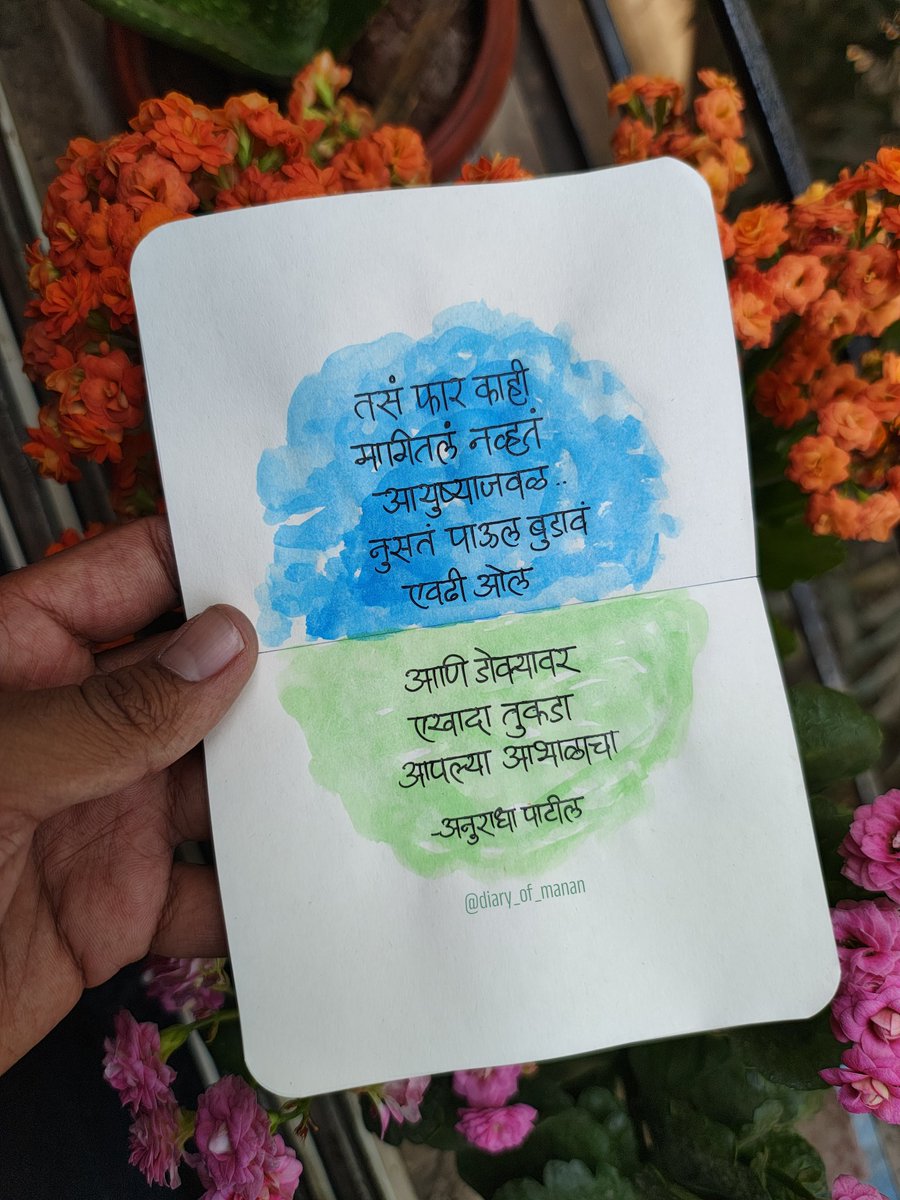 तसं फार काही
मागितलं नव्हतं
आयुष्याजवळ..
नुसतं पाऊल बुडावं
एवढी ओल
आणि डोक्यावर
एखादा तुकडा
आपल्या आभाळाचा
-अनुराधा पाटील
@diary_of_manan